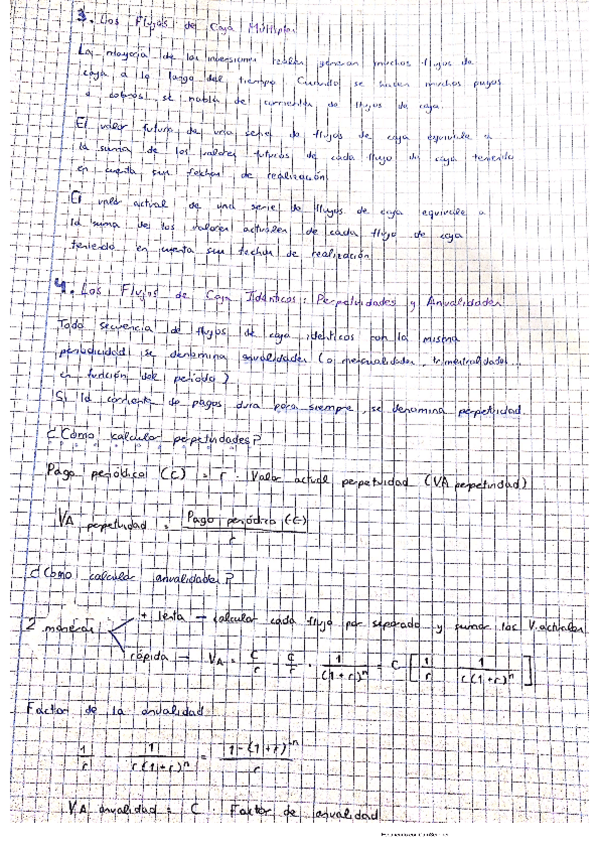 3. Los Flujos de Caja Múltiples
La mayoría de las inversiones reales generan muchos flujos de
caja a lo largo del tiempo. Cuando se hacen muchos pagos
o cobros, se habla de corriente de flujos de caja.
El valor futuro de una serie de flujos de caja equivale a
la suma de los valores futuros de cada flujo de caja teniendo
en cuenta sus fechas de realización.
El valor actual de una serie de flujos de caja equivale a
la suma de los valores actuales de cada flujo de caja
teniendo en cuenta sus fechas de realización
4. Los Flujos de Caja Idénticos: Perpetuidades y Anualidades
Toda secuencia de flujos de caja idénticos con la misma
periodicidad se denomina anualidades (o mensualidades, trimestralidades...
en función del período)
Si la corriente de pagos dura para siempre, se denomina perpetuidad.
¿Cómo calcular perpetuidades?
Pago periódico (C) = r · Valor actual perpetuidad (VA perpetuidad)
VA perpetuidad = Pago periódico (C) / r
¿Cómo calcular anualidades?
2 maneras
+ lenta → calcular cada flujo por separado y sumar los V. actuales
rápida → VA = C/r - C/r · 1/(1+r)^n = C [1/r - 1/(r(1+r)^n)]
Factor de la anualidad
1/r - 1/(r(1+r)^n) = (1-(1+r)^-n)/r
VA anualidad = C · Factor de anualidad